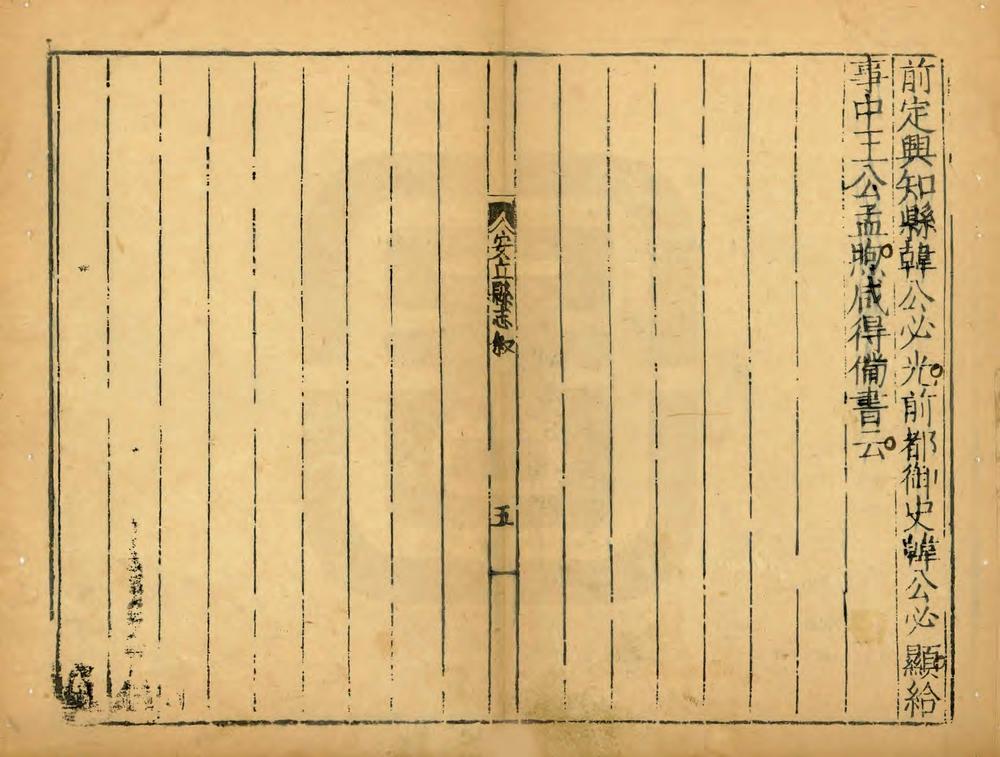 前定興知縣韓公必光前都御史韓公必顯給
事中王公孟煦咸得備書云
安丘縣志叙
五